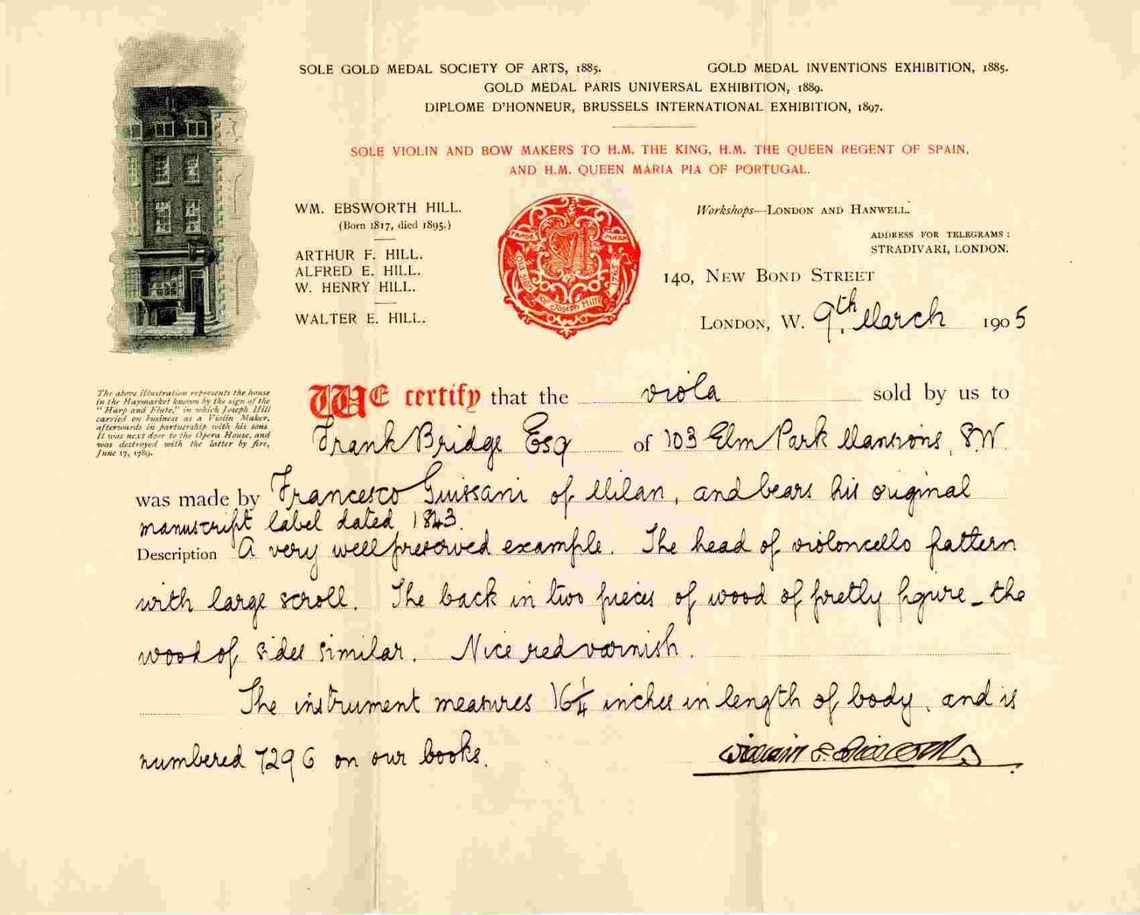 SOLE GOLD MEDAL SOCIETY OF ARTS, 1885. GOLD MEDAL INVENTIONS EXHIBITION, 1885.
GOLD MEDAL PARIS UNIVERSAL EXHIBITION, 1889.
DIPLOME D'HONNEUR, BRUSSELS INTERNATIONAL EXHIBITION, 1897.
SOLE VIOLIN AND BOW MAKERS TO H.M. THE KING, H.M. THE QUEEN REGENT OF SPAIN,
AND H.M. QUEEN MARIA PIA OF PORTUGAL.
WM. EBSWORTH HILL.
(Born 1817, died 1895.)
ARTHUR F. HILL.
ALFRED E. HILL.
W. HENRY HILL.
WALTER E. HILL.
TRADE MARK
Old Sign of Joseph Hill 1762
Workshops—LONDON AND HANWELL.
ADDRESS FOR TELEGRAMS:
STRADIVARI, LONDON.
140, NEW BOND STREET
LONDON, W. 9th March 1905
The above illustration represents the house
in the Haymarket known by the sign of the
"Harp and Flute," in which Joseph Hill
carried on business as a Violin Maker,
afterwards in partnership with his sons.
It was next door to the Opera House, and
was destroyed with the latter by fire,
June 17, 1789.
WE certify that the viola sold by us to
Frank Bridge Esq of 103 Elm Park Mansions, S.W.
was made by Francesco Guissani of Milan, and bears his original
manuscript label dated 1843.
Description A very well preserved example. The head of violoncello pattern
with large scroll. The back in two pieces of wood of pretty figure - the
wood of sides similar. Nice red varnish.
The instrument measures 16¼ inches in length of body, and is
numbered 7296 on our books.
William E. Hill & Sons